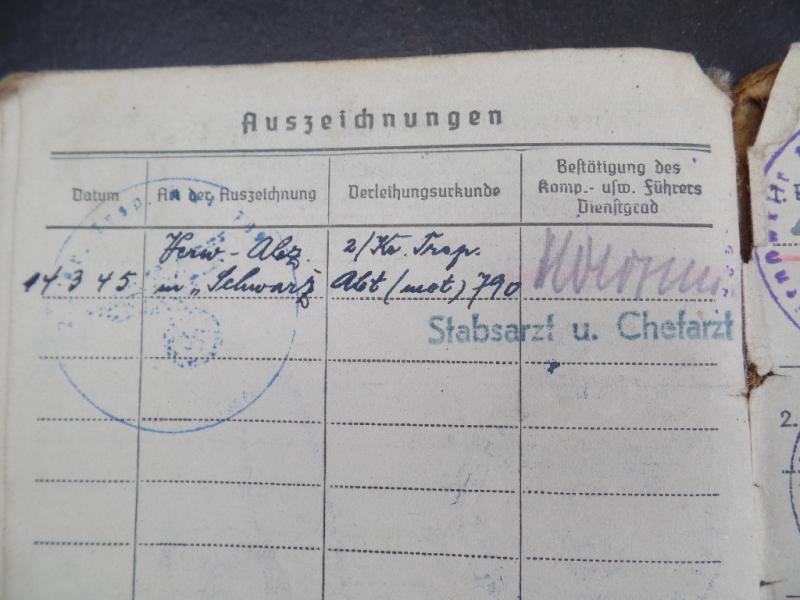 Auszeichnungen
Datum
Art der Auszeichnung
Verleihungsurkunde
Bestätigung des
Komp.- usw. Führers
Dienstgrad
14. 3 45
Verw.- Abz.
in „Schwarz
2/Kr. Trsp.
Abt (mot) 790
Stabsarzt u. Chefarzt
2.